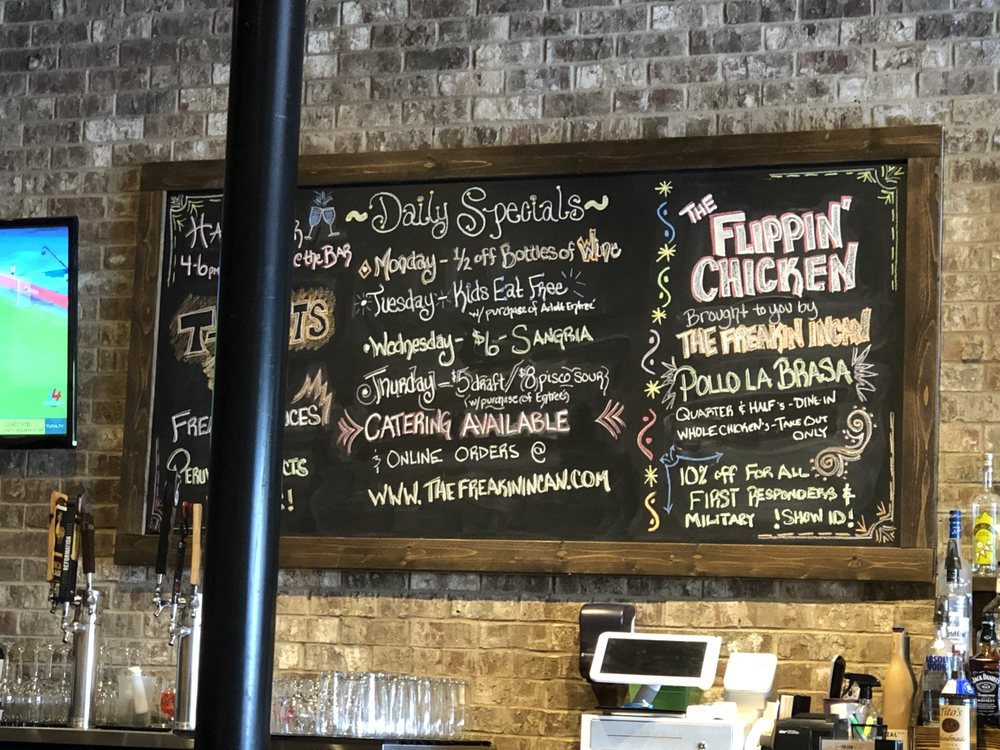 4-6pm
@ the BAR
~Daily Specials~
Monday - 1/2 off Bottles of Wine
Tuesday - Kids Eat Free
w/ purchase of Adult Entree
Wednesday - $6 - SANGRIA
Thurday - $5 draft / $8 pisco sour
(w/ purchase of Entree)
CATERING AVAILABLE
& ONLINE ORDERS @
WWW.THEFREAKININCAN.COM
THE
FLIPPIN'
CHICKEN
Brought to you by
THE FREAKIN INCAN!
POLLO LA BRASA
QUARTER & HALF'S - DINE-IN
WHOLE CHICKEN'S - TAKE OUT
ONLY
10% off FOR ALL
FIRST RESPONDERS &
MILITARY !SHOW ID!
REFORMATION
4
ABSOLUT
VODKA
JACK DANIEL'S
Tito's
Handmade